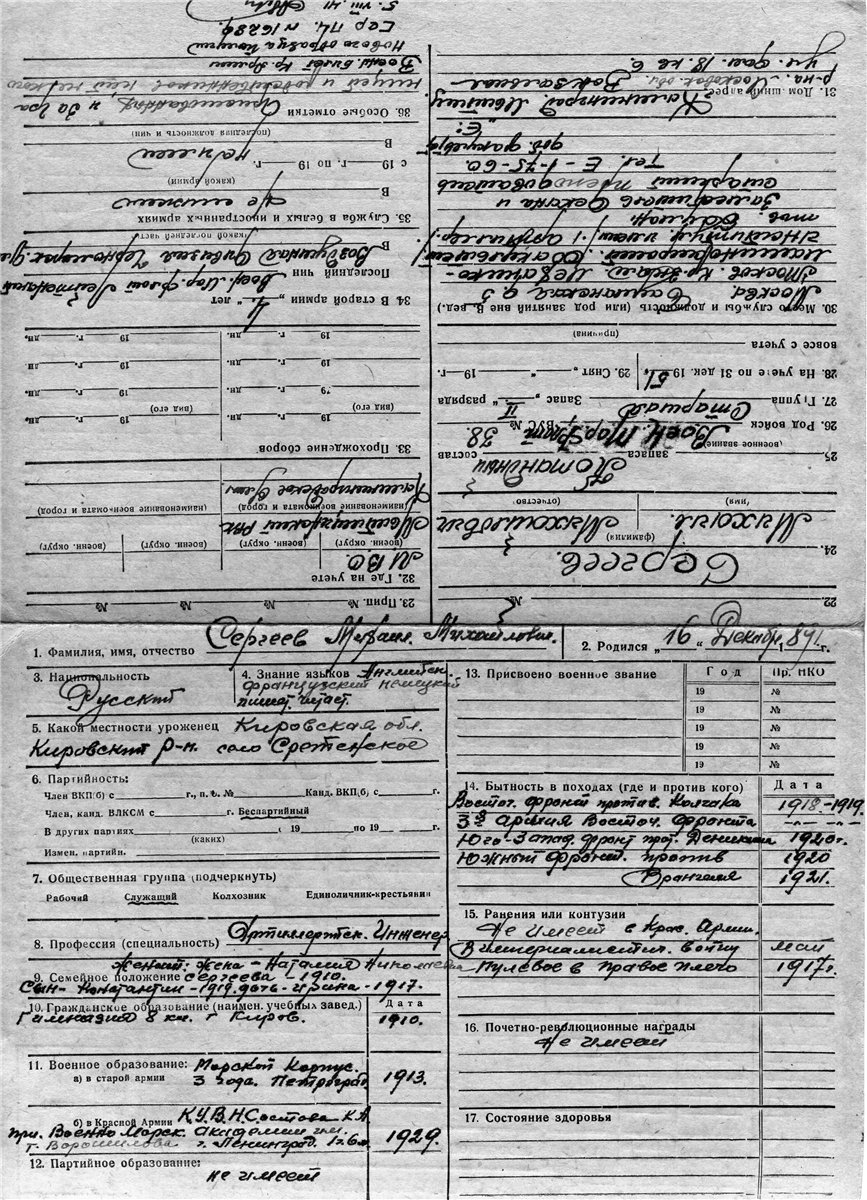 22. №
24. Сергеев
(фамилия)
Михаил Михайлович
(имя) (отчество)
25. Командный состав
запаса
(военное звание)
26. Род войск Воен. Мор. Флот ВУС № 38
27. Группа Запас II разряда
Старший
28. На учете по 31 дек. 1951 г. 29. Снят „ “ 19 г.
вовсе с учета
(причина)
30. Место службы и должность (или род занятий вне в. вед.)
Москва
Заместитель Декана и
старший преподаватель
Тел. Е-1-75-60.
31. Домашний адрес: Калининград Мытищ.
р-на Московск. обл. Вокзальная
ул. дом. 18 кв 6
23. Прип. № № №
32. Где на учете
МВО.
(воен. округ) (воен. округ) (воен. округ) (воен. округ)
Мытищинский РВК
(наименование военкомата и город) (наименование военкомата и город)
Калининградское
33. Прохождение сборов
(вид его) (вид его)
19 г. дн. 19 г. дн.
19 г. дн. 19 г. дн.
19 г. дн. 19 г. дн.
19 г. дн. 19 г. дн.
34. В старой армии „4“ лет
Последний чин Воен. Мор. Флот Лейтенант
В Воздушная дивизия Черноморск.
(какой последней части)
35. Служба в белых и иностранных армиях
В не имеет
(какой армии)
с 19 г. по 19 г.
В не имел
(последняя должность и чин)
36. Особые отметки
Воен. билет Кр. Армии
Нового образца получил
Сер ПЧ. № 16289.
5. VIII. 41
1. Фамилия, имя, отчество Сергеев Михаил Михайлович 2. Родился „16“ Декабр. 1891 г.
3. Национальность
Русский
4. Знание языков Английск.
французский немецкий
пишет. читает.
5. Какой местности уроженец Кировская обл.
Кировский р-н. село Сретенское
6. Партийность:
Член ВКП(б) с г., п. б. № Канд. ВКП(б) с г.
Член, канд. ВЛКСМ с г. Беспартийный
В других партиях с 19 по 19 г.
(каких)
Измен. партийн.
7. Общественная группа (подчеркнуть)
Рабочий Служащий Колхозник Единоличник-крестьянин
8. Профессия (специальность) Артиллерийск. Инженер
9. Семейное положение Женат: жена - Наталия Николаевна
Сергеева - 1910.
Сын - Константин - 1919. дочь - Ирина - 1917.
10. Гражданское образование (наимен. учебных завед.) Дата
Гимназия 8 кл. г Киров. 1910.
11. Военное образование: Морской Корпус.
а) в старой армии 3 года. Петроград 1913.
б) в Красной Армии К.У.В.Н.Состава К.А
при. Военно Морск. Академии им.
т. Ворошилова г. Ленинград. 1г. 6 м. 1929.
12. Партийное образование:
не имеет
13. Присвоено военное звание Год Пр. НКО
19 №
19 №
19 №
19 №
19 №
14. Бытность в походах (где и против кого) Дата
Восточ. фронт против. Колчака 1918-1919.
3я Армия Восточ. фронта „ — „ —
Юго-Запад. фронт прот. Деникина 1920г.
Южный фронт. против 1920
Врангеля 1921.
15. Ранения или контузии
Не имеет в Крас. Армии.
В империалистич. войну май
Пулевое в правое плечо 1917г.
16. Почетно-революционные награды
не имеет
17. Состояние здоровья